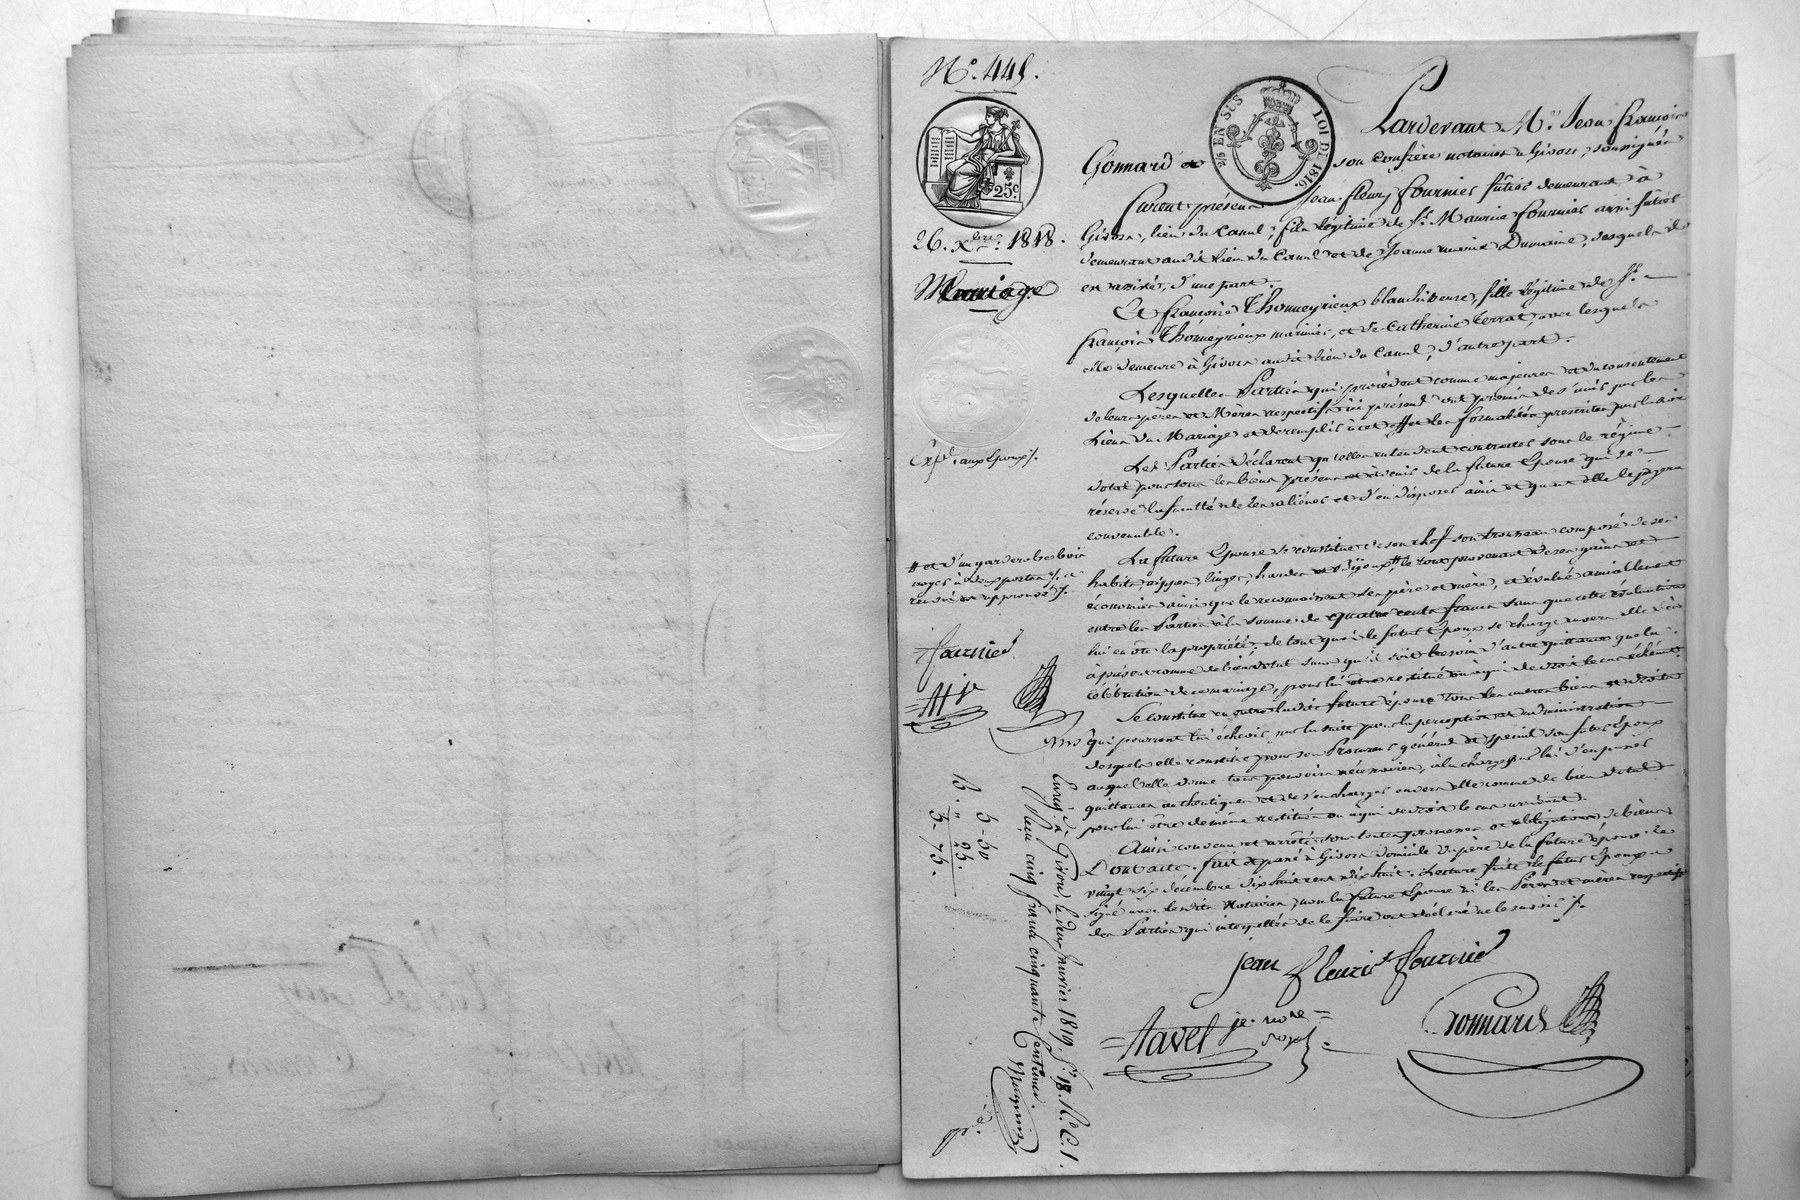 N.º 445.
25.c
2/5 EN SUS LOI DE 1816.
26. Xbre. 1818.
Mariage
Expéd. aux Epoux
Pardevant Me. Jean françois
Gonnard et son Confrère notaires à Givors, soussignés
furent présens Jean fleury fournier fûtier demeurant à
Givors, lieu du Canal, fils légitime de Sr. Maurice fournier aussi fûtier
demeurant audit lieu du Canal et de Jeanne marie Dumaine, desquels il
est assisté, d'une part.
Et françoise Thomeyrieux blanchisseuse, fille légitime de Sr.
françois Thomeyrieux marinier, et de Catherine terrat, avec lesquels
elle demeure à Givors audit lieu du Canal, d'autre part.
Lesquelles Parties qui procèdent comme majeures et du consentement
de leurs pères et Mères respectifs ici présens ont promis de s'unir par les
Liens du Mariage et de remplir à cet effet les formalités prescrites par la loi
Les Parties déclarent qu'elles entendent contracter sous le régime
dotal pour tous les biens présens et à venir de la future Epouse qui se
réserve la faculté de les aliéner et d'en disposer ainsi et quand elle le jugera
convenable.
La future Epouse se constitue de son chef son trousseau composé de ses
habits, nippes, linges, hardes et bijoux # le tout provenant de ses gains et
économies ainsi que le reconnoissent ses père et mère, et évalué amiablement
entre les Parties à la somme de quatre cents francs sans que cette évaluation
lui en ôte la propriété, de tout quoi le futur Epoux se charge envers elle dès
à présent comme de bien dotal sans qu'il soit besoin d'autre quittance que la
célébration de ce mariage, pour lui être restitué ou à qui de droit le cas échéant.
# et d'un garderobe bois
noyer à deux portes /. et
renvoi approuvé /.
fournier
Se constitue en outre ladite future épouse tous les autres biens et droits
qui pourront lui échoir par la suite pour la perception et administration
desquels elle constitue pour son Procureur général et spécial son futur Epoux
auquel elle donne tous pouvoirs nécessaires, à la charge par lui d'en passer
quittances authentiques et de s'en charger envers elle comme de bien dotal
pour lui être de même restitué ou à qui de droit le cas arrivant.
Ainsi convenu et arrêté sous toutes promesses et obligations de biens
Dont acte. fait et passé à Givors domicile du père de la future épouse le
vingt six décembre dix huit cent dix huit. Lecture faite le futur Epoux a
signé avec lesdits Notaires, non la future Epouse ni les Pères et mères respectifs
des Parties qui interpellés de le faire ont déclaré ne le savoir /.
jean fleuris fournier
Tavel je. notre
Gonnard
5 - 50
" 25.
5 - 75.
Enreg. à Givors, le deux janvier 1819, fo. 18. Ro. C. 1.
Reçu cinq francs cinquante Centimes.